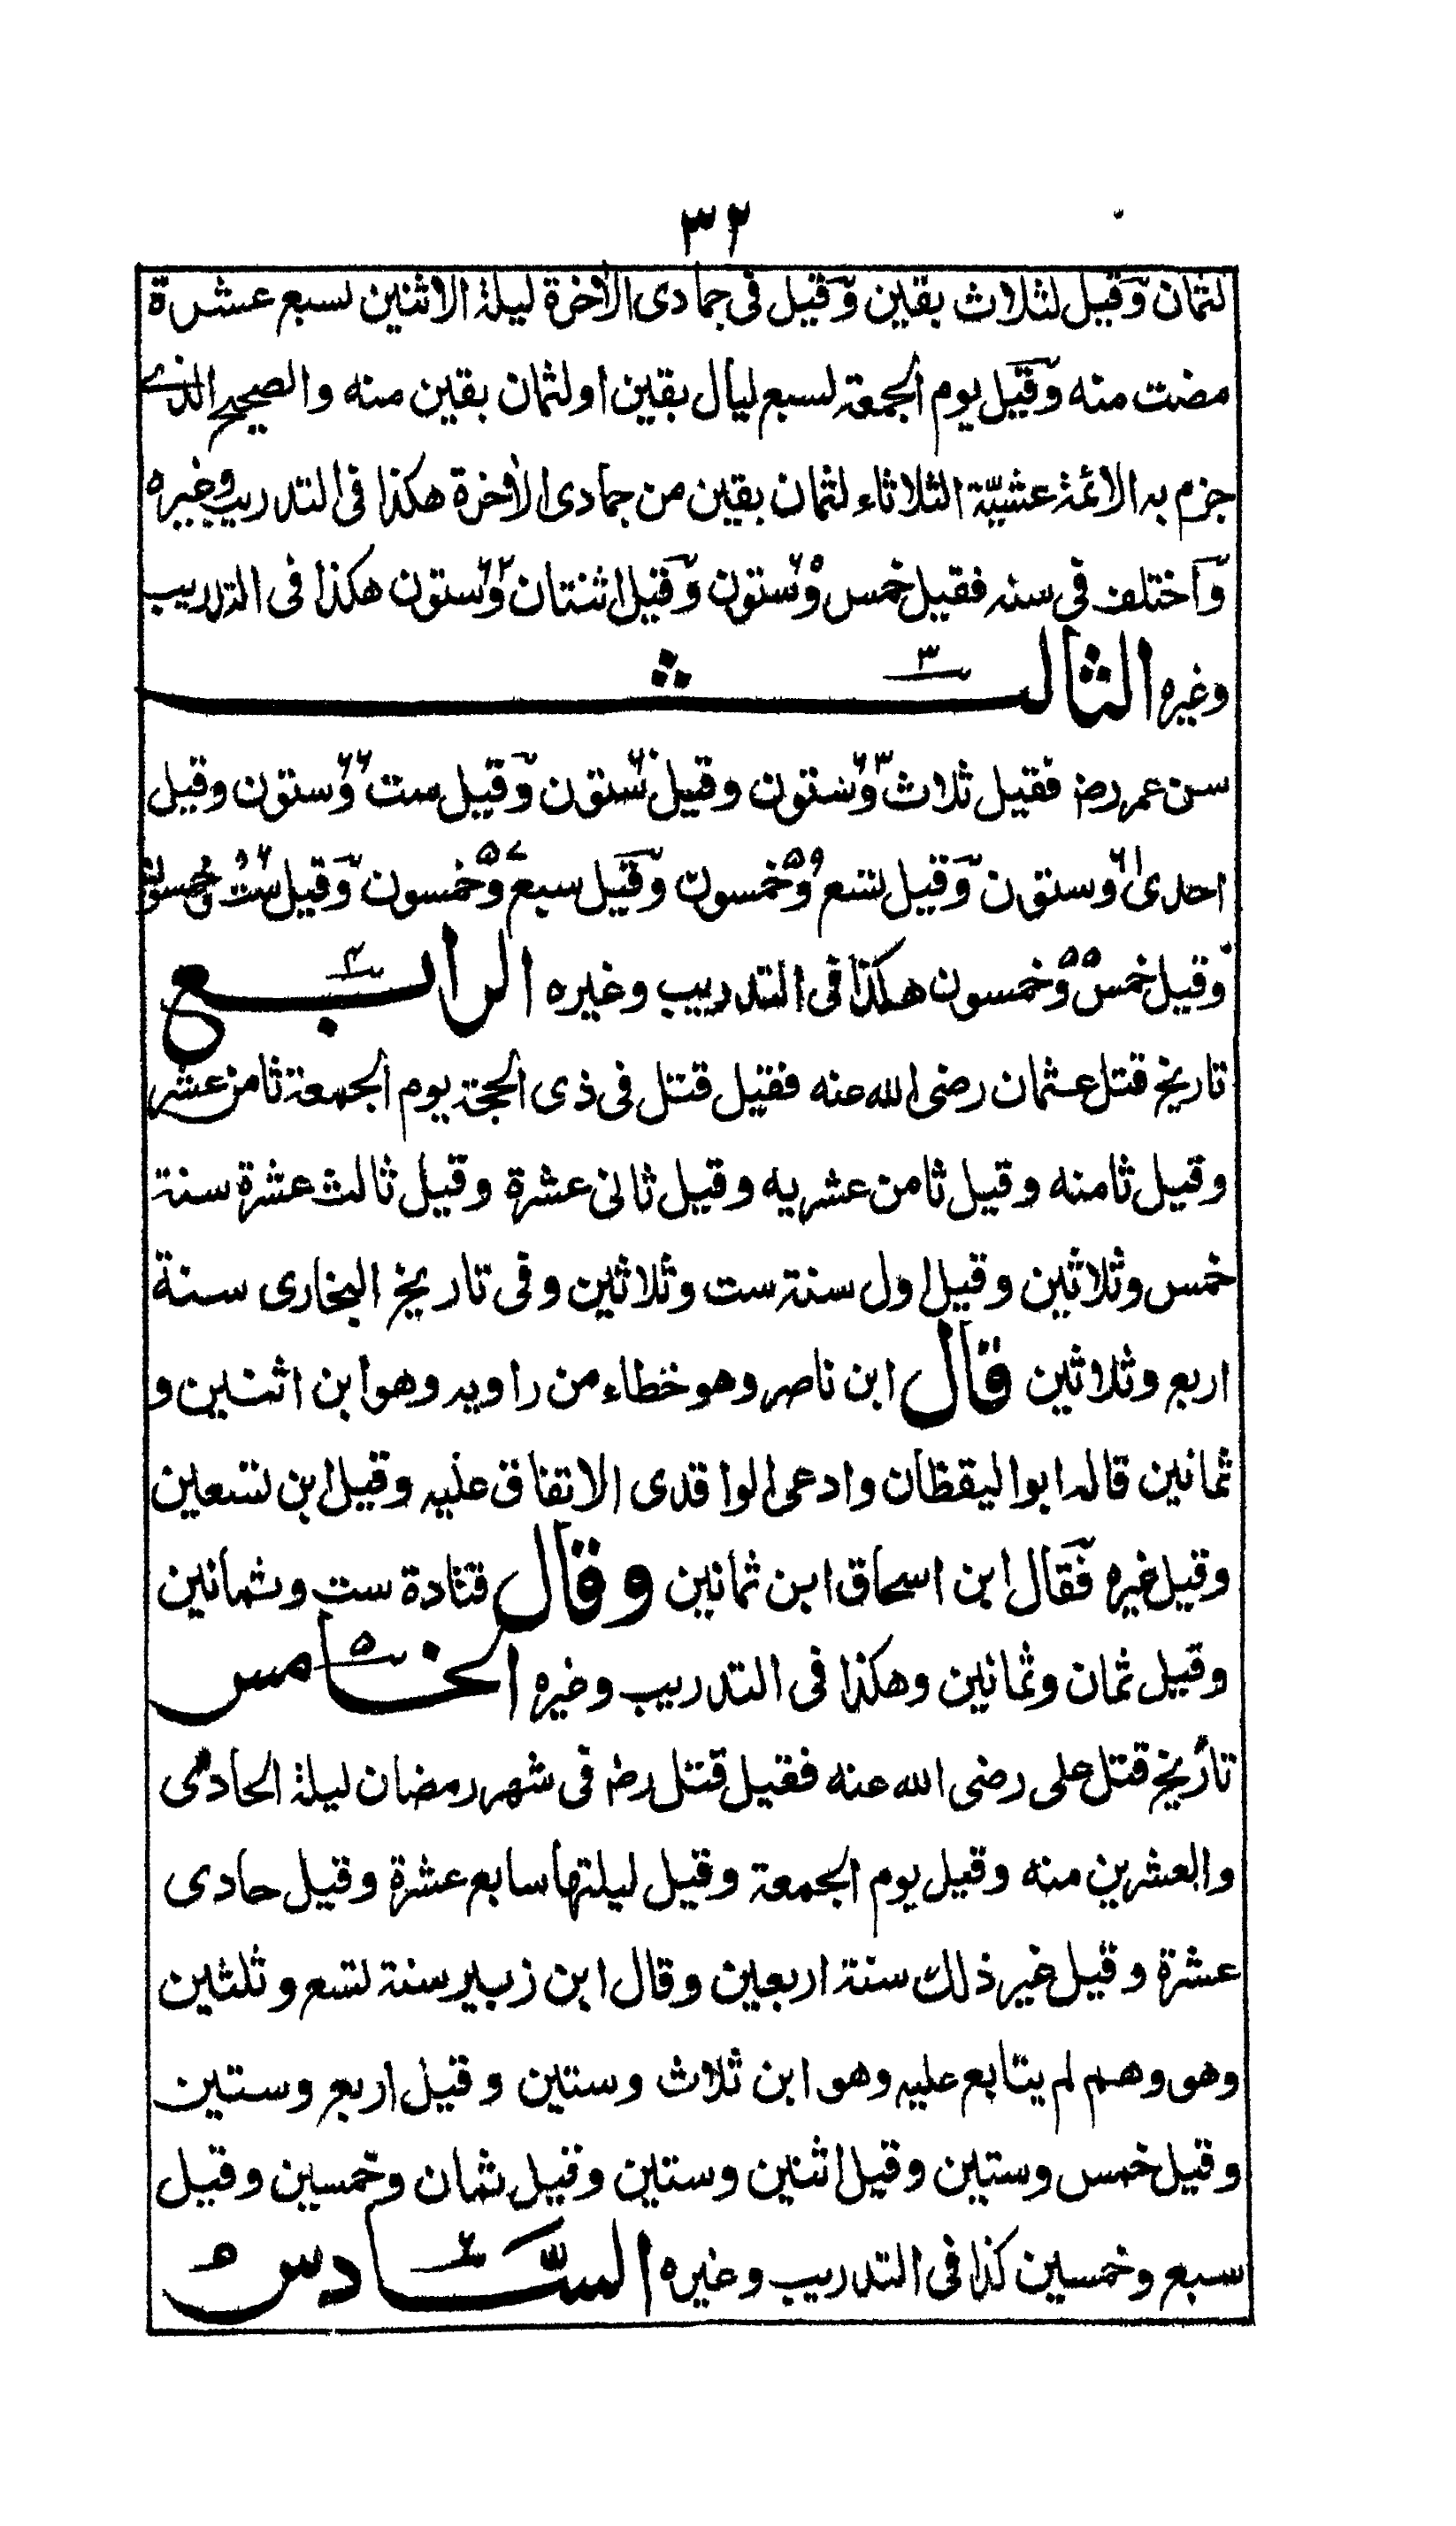 ٣٢
لثمان وقيل لثلاث بقين وقيل فى جمادى الأخرة ليلة الاثنين لسبع عشرة
مضت منه وقيل يوم الجمعة لسبع ليال بقين او لثمان بقين منه والصحيح الذے
جزم به الائمة عشيّة الثلاثاء لثمان بقين من جمادى الأخرة هكذا فى التدريب وغيره
واختلف فى سنه فقيل خمس وستون ٦٥ وقيل اثنتان وستون ٦٢ هكذا فى التدريب
وغيره الثالث ٣
سن عمر رضـ فقيل ثلاث وستون ٦٣ وقيل ستون ٦٠ وقيل ست وستون ٦٦ وقيل
احدى وستون ٦١ وقيل تسع وخمسون ٥٩ وقيل سبع وخمسون ٥٧ وقيل ست وخمسون ٥٦
وقيل خمس وخمسون ٥٥ هكذا فى التدريب وغيره الرابع ٤
تاريخ قتل عثمان رضى الله عنه فقيل قتل فى ذى الحجة يوم الجمعة ثامن عشر
وقيل ثامنه وقيل ثامن عشريه وقيل ثانى عشرة وقيل ثالث عشرة سنة
خمس وثلاثين وقيل اول سنة ست وثلاثين وفى تاريخ البخارى سنة
اربع وثلاثين قال ابن ناصر وهو خطاء من راويه وهو ابن اثنين و
ثمانين قاله ابو اليقظان وادعى الواقدى الاتفاق عليه وقيل ابن تسعين
وقيل غيره فقال ابن اسحاق ابن ثمانين وقال قتادة ست وثمانين
وقيل ثمان وثمانين وهكذا فى التدريب وغيره الخامس ٥
تاريخ قتل على رضى الله عنه فقيل قتل رضـ فى شهر رمضان ليلة الحادى
والعشرين منه وقيل يوم الجمعة وقيل ليلتها سابع عشرة وقيل حادى
عشرة وقيل غير ذلك سنة اربعين وقال ابن زبير سنة تسع وثلثين
وهو وهم لم يتابع عليه وهو ابن ثلاث وستين وقيل اربع وستين
وقيل خمس وستين وقيل اثنين وستين وقيل ثمان وخمسين وقيل
سبع وخمسين كذا فى التدريب وغيره السّادس ٦